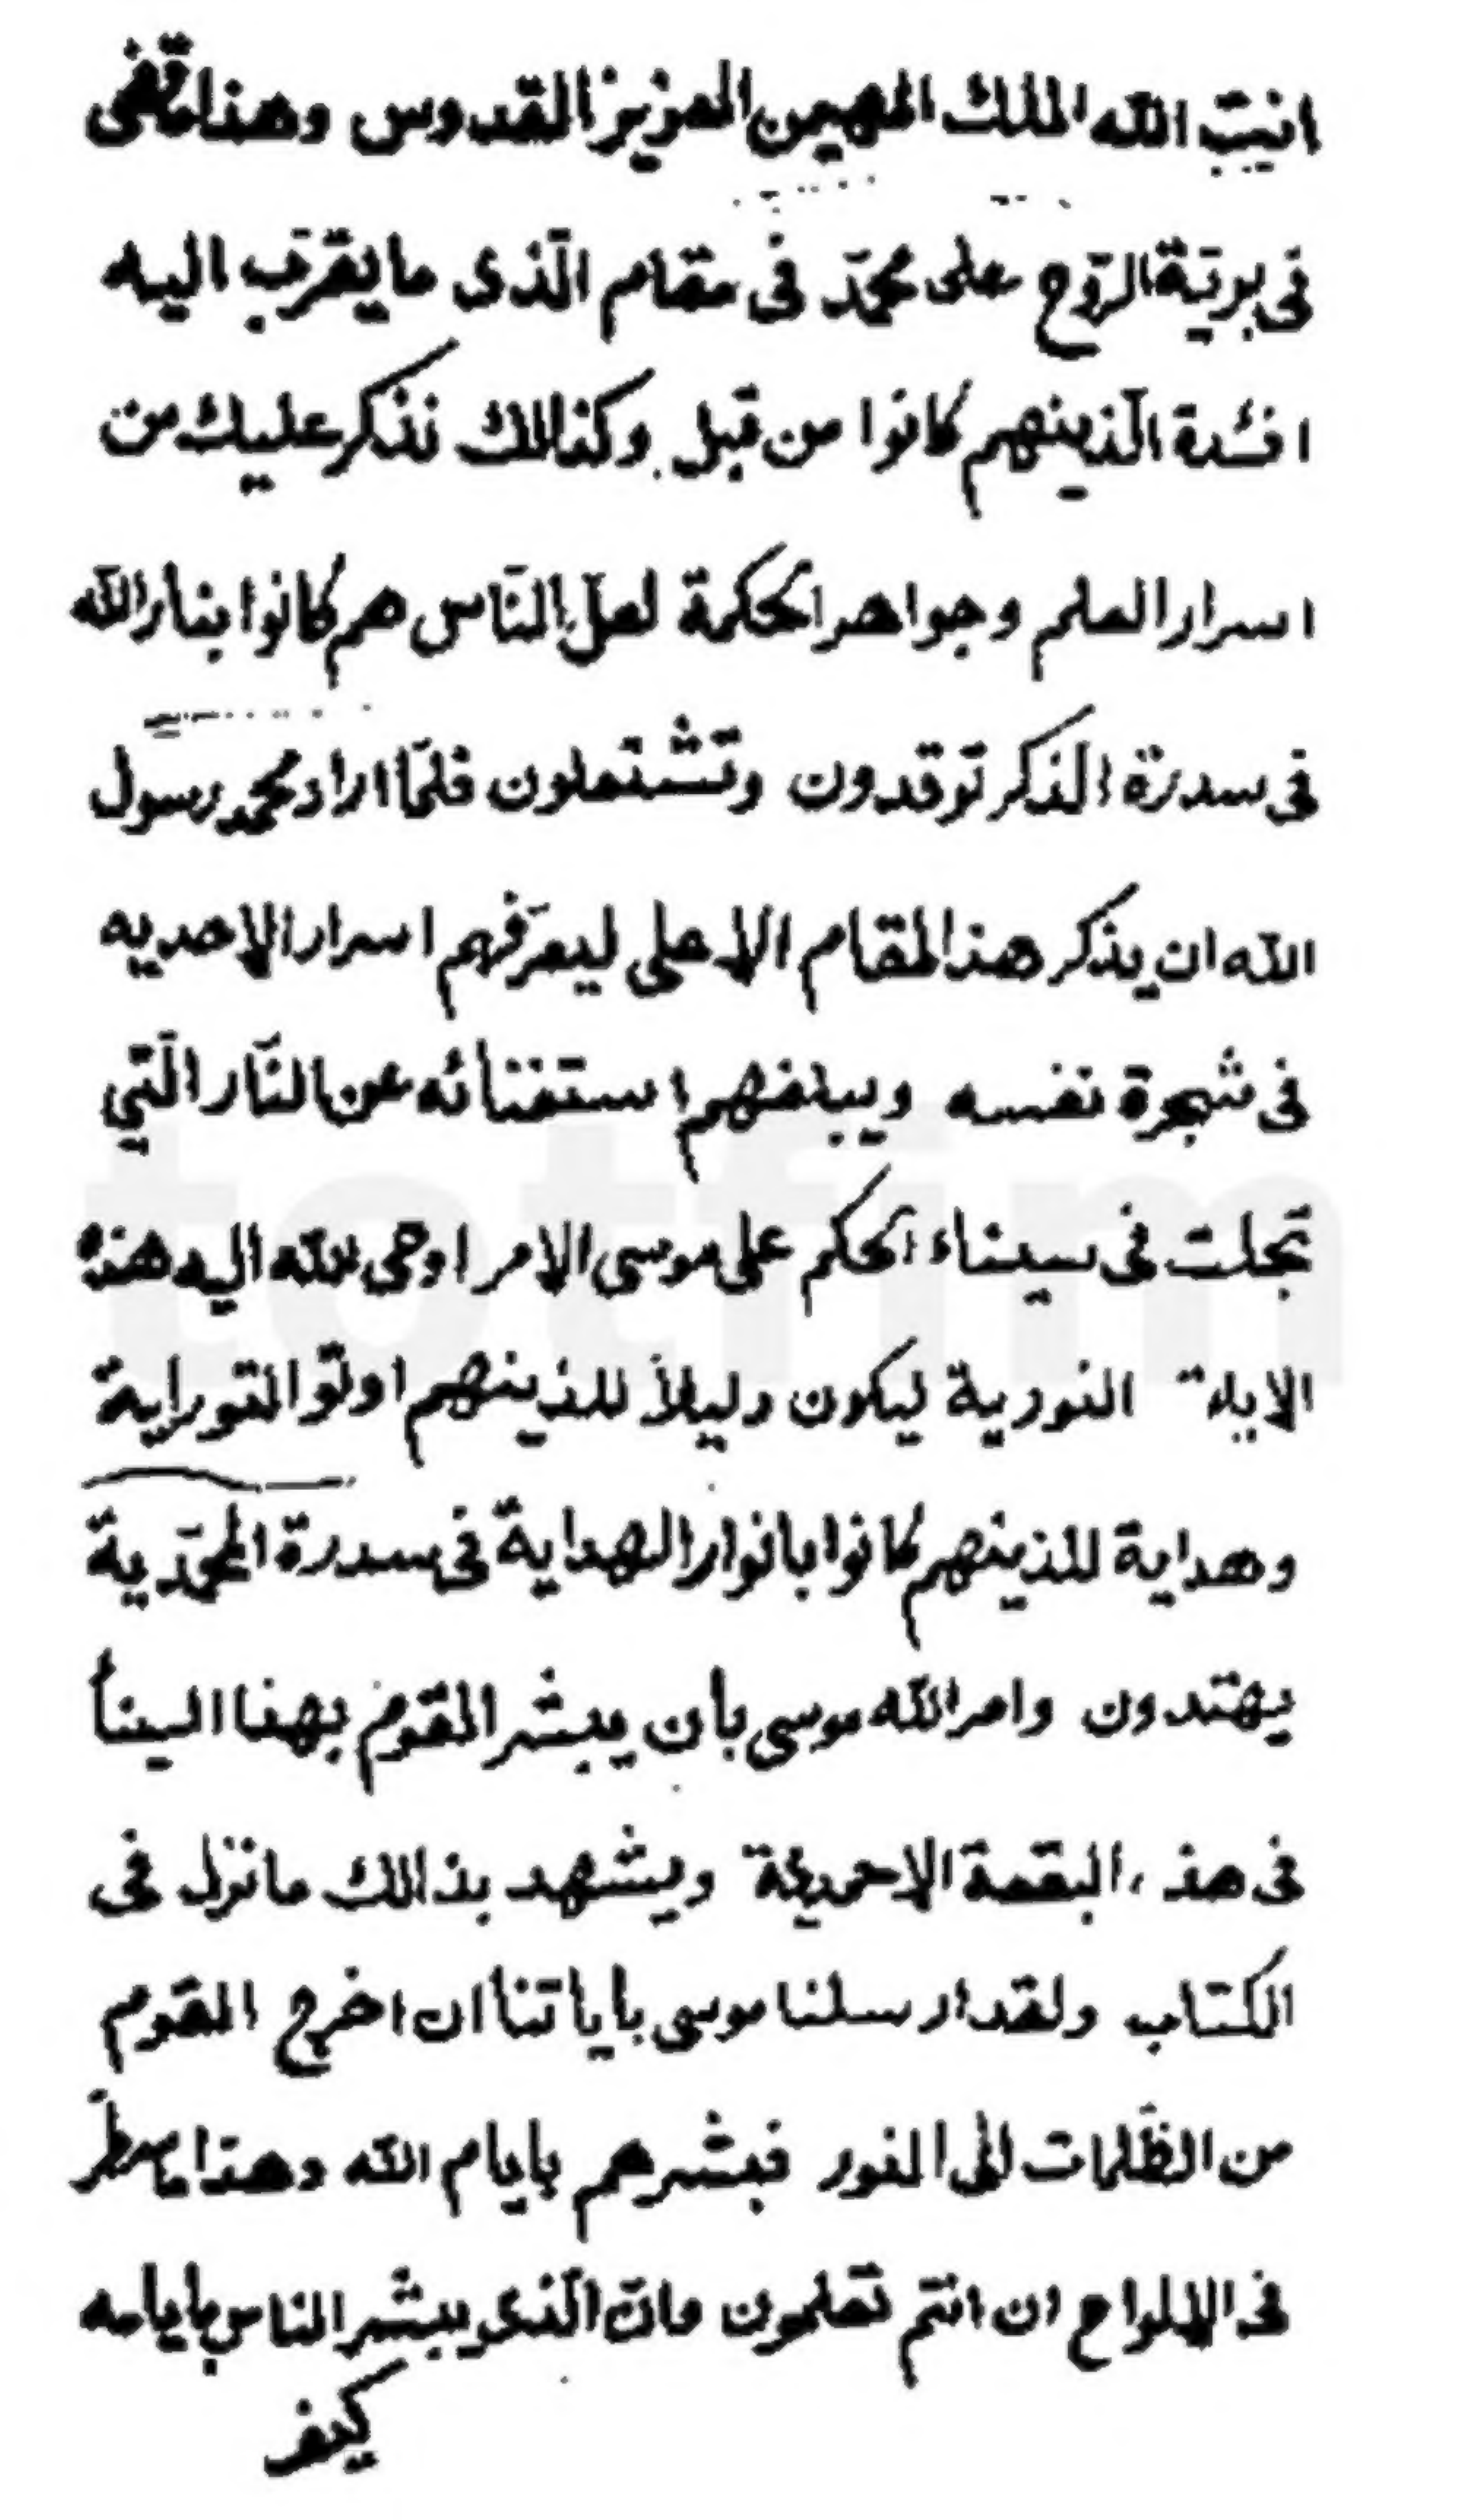 انیّت الله الملك المهیمن العزیز القدوس وهذا ما تغنی
فی بریّة الرّوح علی محمّد فی مقام الّذی ما یقرّب الیه
افئدة الّذینهم كانوا من قبل وكذالك نذكر علیك من
اسرار العلم وجواهر الحكمة لعلّ النّاس هم كانوا بنار الله
فی سدرة الذكر توقدون وتشتعلون فلمّا اراد محمد رسول
الله ان یذكر هذا المقام الاعلی لیعرّفهم اسرار الاحدیه
فی شجرة نفسه ویبلغهم استغنائه عن النّار الّتی
تجلت فی سیناء الحكم علی موسی الامر اوحی الله الیه هذه
الایة النوریة لیكون دلیلاً للذینهم اوتوّ التورایة
وهدایة للذینهم كانوا بانوار الهدایة فی سدرة المحمّدیة
یهتدون وامر الله موسی بأن یبشر القوم بهذا السینأ
فی هذه البقعة الاحمدیّة ویشهد بذالك ما نزل فی
الكتاب ولقد ارسلنا موسی بایاتنا ان اخرج القوم
من الظّلمات الی النور فبشرهم بایام الله وهذا ما سطّر
فی الالواح ان انتم تعلمون وانّ الّذی یبشّر الناس بایامه
كیف